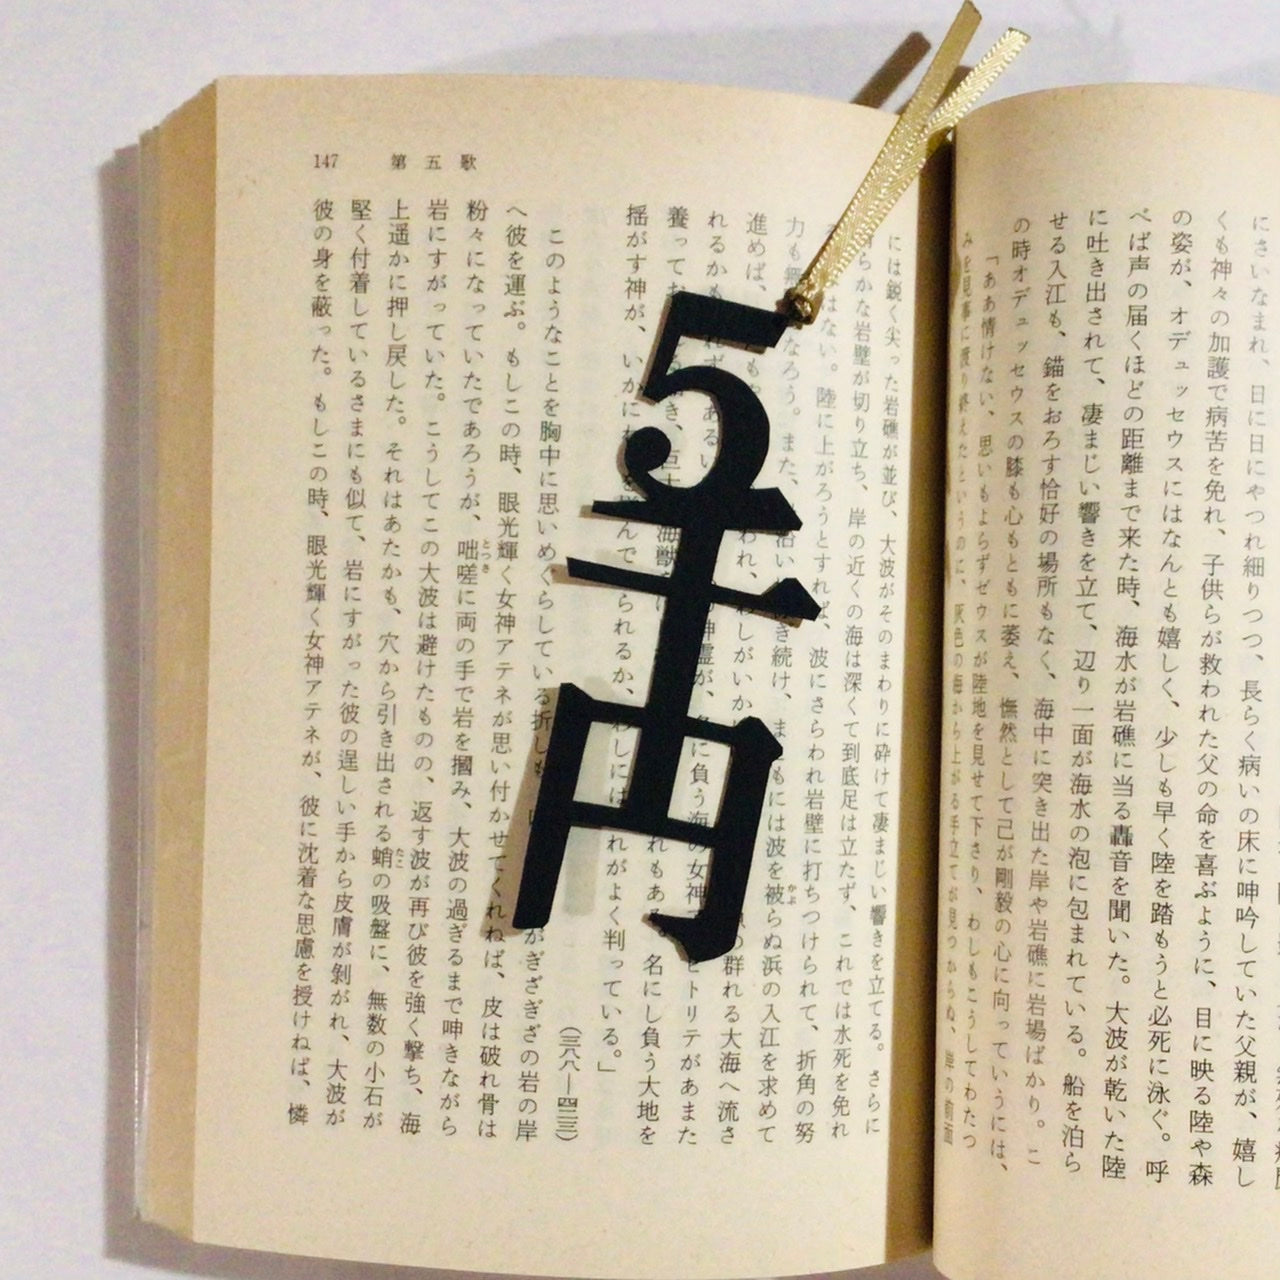 にさいなまれ、日に日にやつれ細りつつ、長らく病いの床に呻吟していた父親が、嬉し
くも神々の加護で病苦を免れ、子供らが救われた父の命を喜ぶように、目に映る陸や森
の姿が、オデュッセウスにはなんとも嬉しく、少しも早く陸を踏もうと必死に泳ぐ。呼
べば声の届くほどの距離まで来た時、海水が岩礁に当る轟音を聞いた。大波が乾いた陸
に吐き出されて、凄まじい響きを立て、辺り一面が海水の泡に包まれている。船を泊ら
せる入江も、錨をおろす恰好の場所もなく、海中に突き出た岸や岩礁に岩場ばかり。こ
の時オデュッセウスの膝も心もともに萎え、憮然として己が剛毅の心に向っていうには、
「ああ情けない、思いもよらずゼウスが陸地を見せて下さり、わしもこうしてわたつ
みを見事に渡り終えたというのに、灰色の海から上がる手立てが見つからぬ、岸の前面
147 第五歌
には鋭く尖った岩礁が並び、大波がそのまわりに砕けて凄まじい響きを立てる。さらに
らかな岩壁が切り立ち、岸の近くの海は深くて到底足は立たず、これでは水死を免れ
はない。陸に上がろうとすれば、波にさらわれ岩壁に打ちつけられて、折角の努
力も なろう。また、 続け、ま もには波を被らぬ浜の入江を求めて
進めば、 われ、 しがいか の群れる大海へ流さ
れるか れず、あるい 神霊が、 に負う海の女神 ヒトリテがあまた
養ってお き、巨 海獣 れもある。名にし負う大地を
揺がす神が、いかにわ んで られるか、わしには れがよく判っている。」
(三八八―四二三)
このようなことを胸中に思いめぐらしている折しも がぎざぎざの岩の岸
へ彼を運ぶ。もしこの時、眼光輝く女神アテネが思い付かせてくれねば、皮は破れ骨は
粉々になっていたであろうが、咄嗟に両の手で岩を摑み、大波の過ぎるまで呻きながら
岩にすがっていた。こうしてこの大波は避けたものの、返す波が再び彼を強く撃ち、海
上遥かに押し戻した。それはあたかも、穴から引き出される蛸の吸盤に、無数の小石が
堅く付着しているさまにも似て、岩にすがった彼の逞しい手から皮膚が剝がれ、大波が
彼の身を蔽った。もしこの時、眼光輝く女神アテネが、彼に沈着な思慮を授けねば、憐
5千円